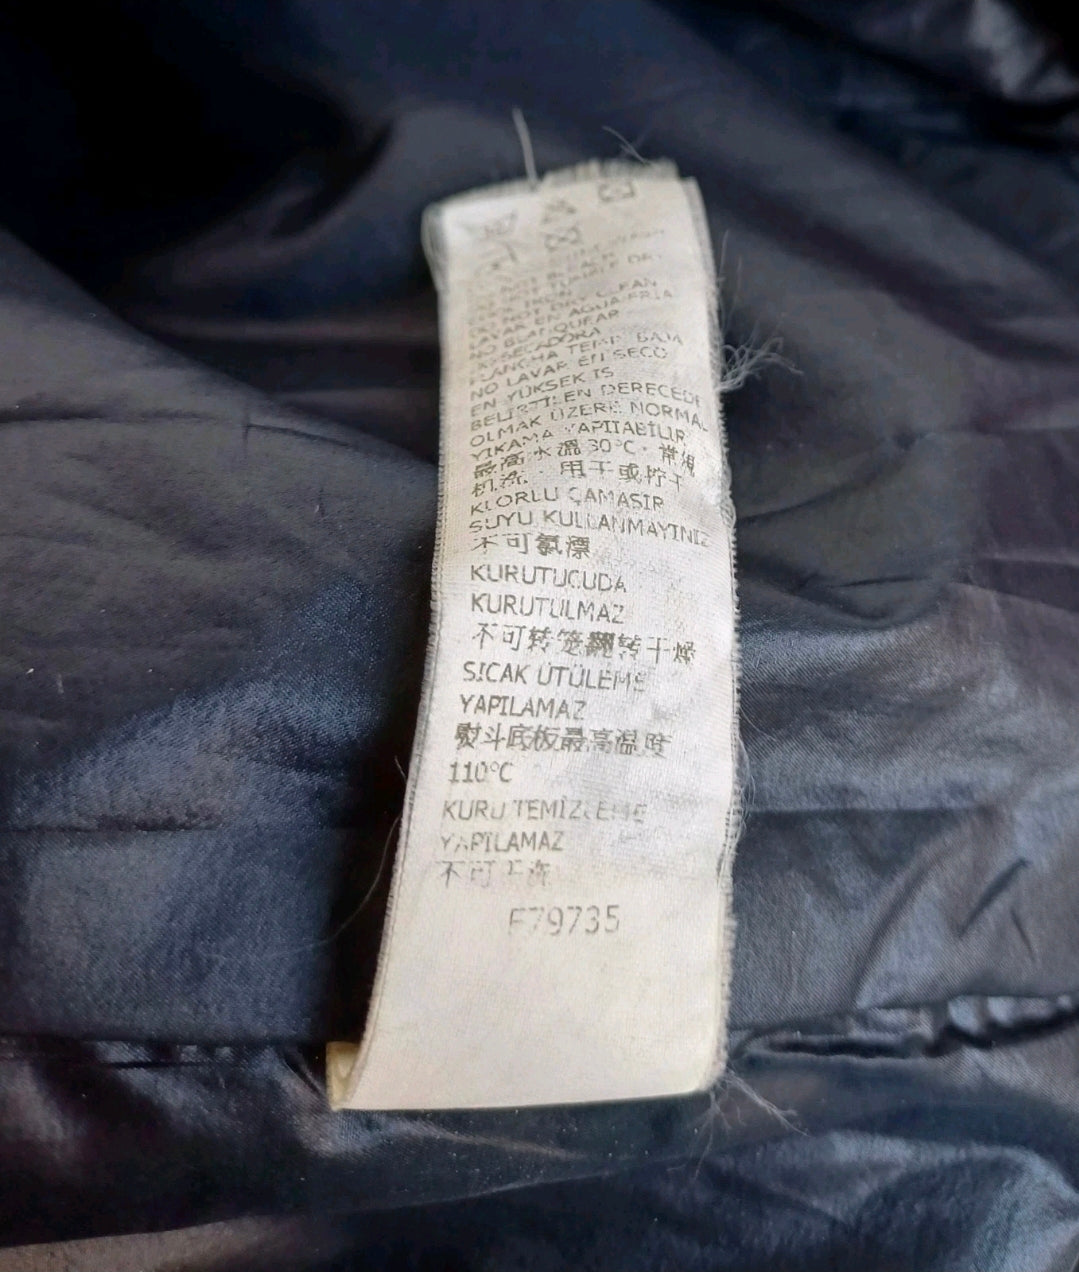 NOT BLEACH
NOT TUMBLE DRY
IRON
DO NOT DRY CLEAN
LAVAR EN AGUA FRIA
NO BLANQUEAR
SECADORA
PLANCHA TEMP BAJA
NO LAVAR EN SECO
EN YÜKSEK IS
BELİRTİLEN DERECEDE
OLMAK ÜZERE NORMAL
YIKAMA YAPILABİLİR
最高水温30°C·常规
机洗·用干或拧干
KLORLU ÇAMASIR
SUYU KULLANMAYINIZ
不可氯漂
KURUTUCUDA
KURUTULMAZ
不可转笼翻转干燥
SICAK ÜTÜLEME
YAPILAMAZ
熨斗底板最高温度
110°C
KURU TEMİZLEME
YAPILAMAZ
不可干洗
F79735